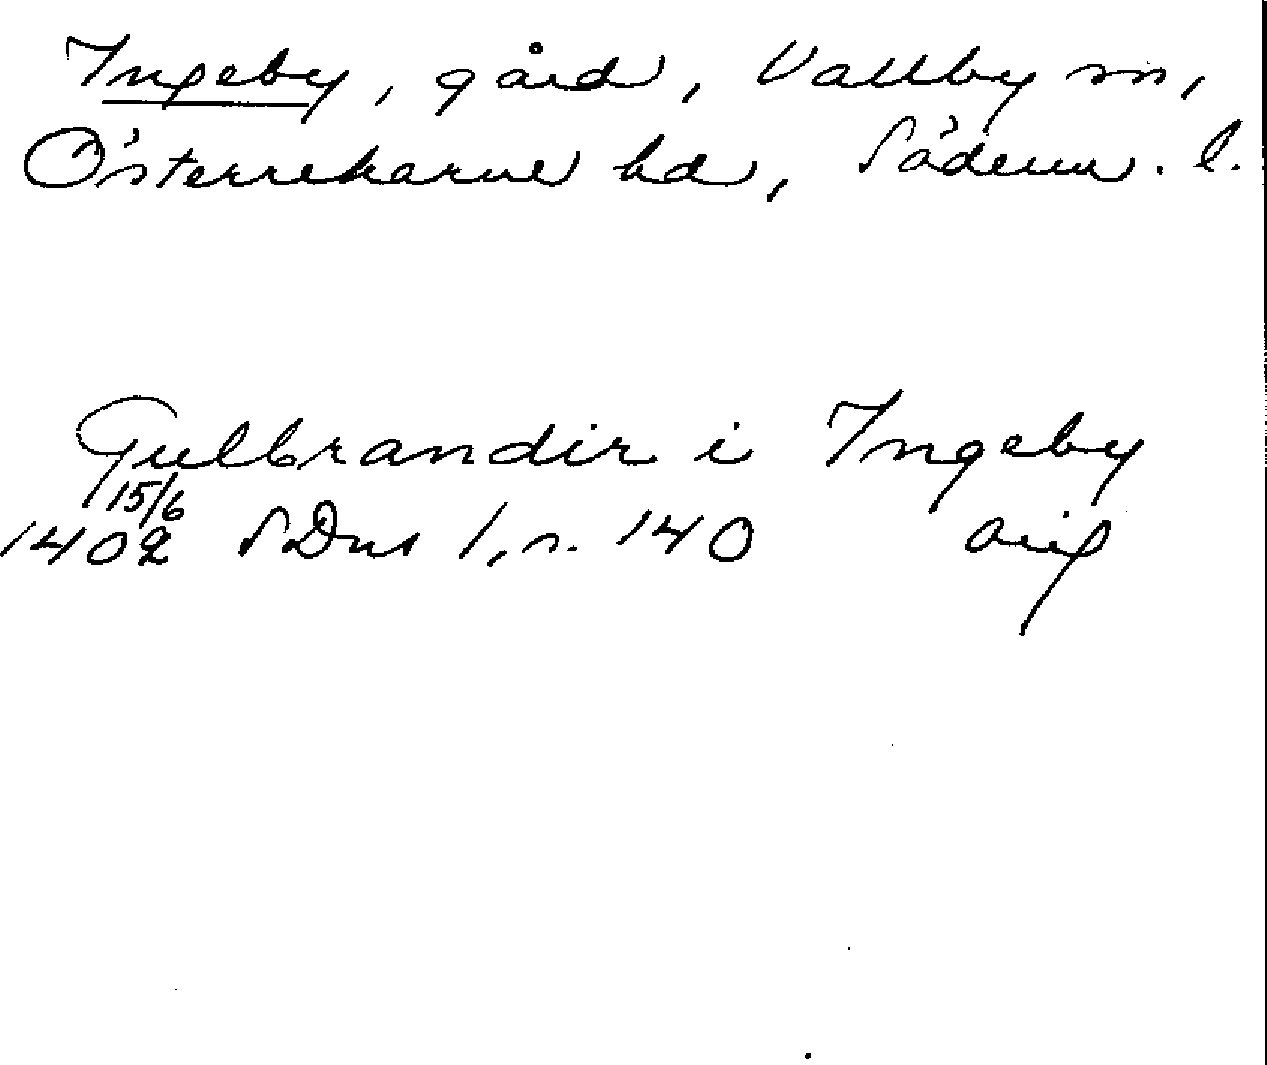 Ingeby, gård, Vallby sn,
Österrekarne hd, Söderm. l.
Gulbrandir i Ingeby
15/6
1402 SDns 1, s. 140 orig